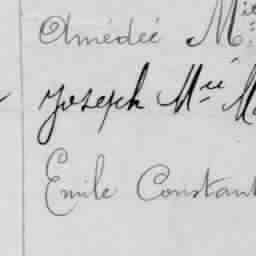 Amédée M
Joseph M
Emile Constant